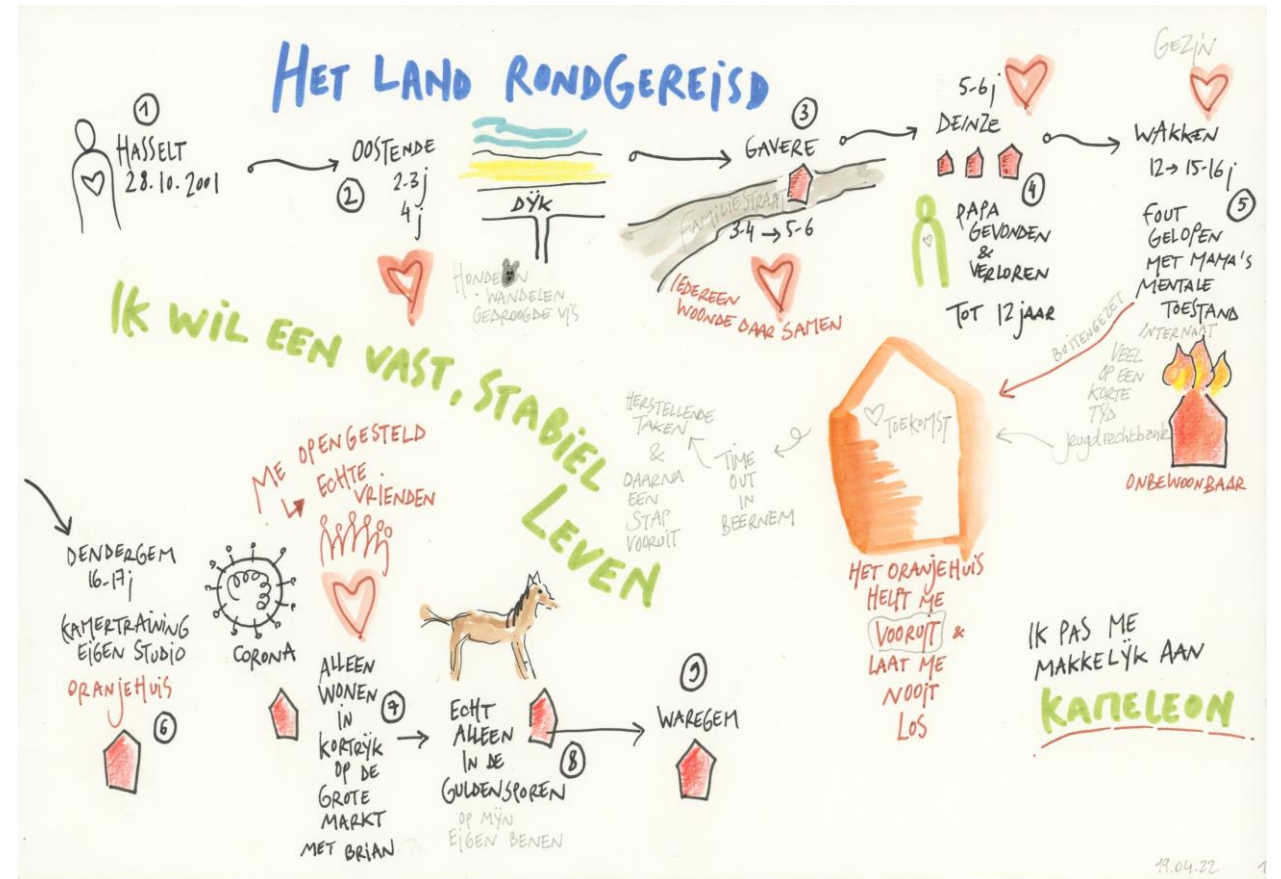 HET LAND RONDGEREISD
①
HASSELT
28.10.2001
OOSTENDE
②
2-3j
4j
DYK
HONDEN
WANDELEN
GEDROOGDE VIS
③
GAVERE
FAMILIESTRAAT
3-4 → 5-6
IEDEREEN
WOONDE DAAR SAMEN
5-6j
DEINZE
④
PAPA
GEVONDEN
&
VERLOREN
TOT 12 JAAR
GEZIN
WAKKEN
12 → 15-16j
⑤
FOUT
GELOPEN
MET MAMA'S
MENTALE
TOESTAND
BUITENGEZET
INTERNAAT
VEEL
OP EEN
KORTE
TYD
jeugdrechtbank
ONBEWOONBAAR
IK WIL EEN VAST, STABIEL
LEVEN
♡ TOEKOMST
TIME
OUT
IN
BEERNEM
HERSTELLENDE
TAKEN
&
DAARNA
EEN
STAP
VOORUIT
HET ORANJEHUIS
HELPT ME
VOORUIT &
LAAT ME
NOOIT
LOS
DENDERGEM
16-17j
KAMERTRAINING
EIGEN STUDIO
ORANJEHUIS
⑥
CORONA
ME OPENGESTELD
ECHTE
VRIENDEN
ALLEEN
WONEN
IN
KORTRYK
OP DE
GROTE
MARKT
MET BRIAN
⑦
ECHT
ALLEEN
IN DE
GULDENSPOREN
OP MYN
EIGEN BENEN
⑧
⑨
WAREGEM
IK PAS ME
MAKKELYK AAN
KAMELEON
19.04.22 1